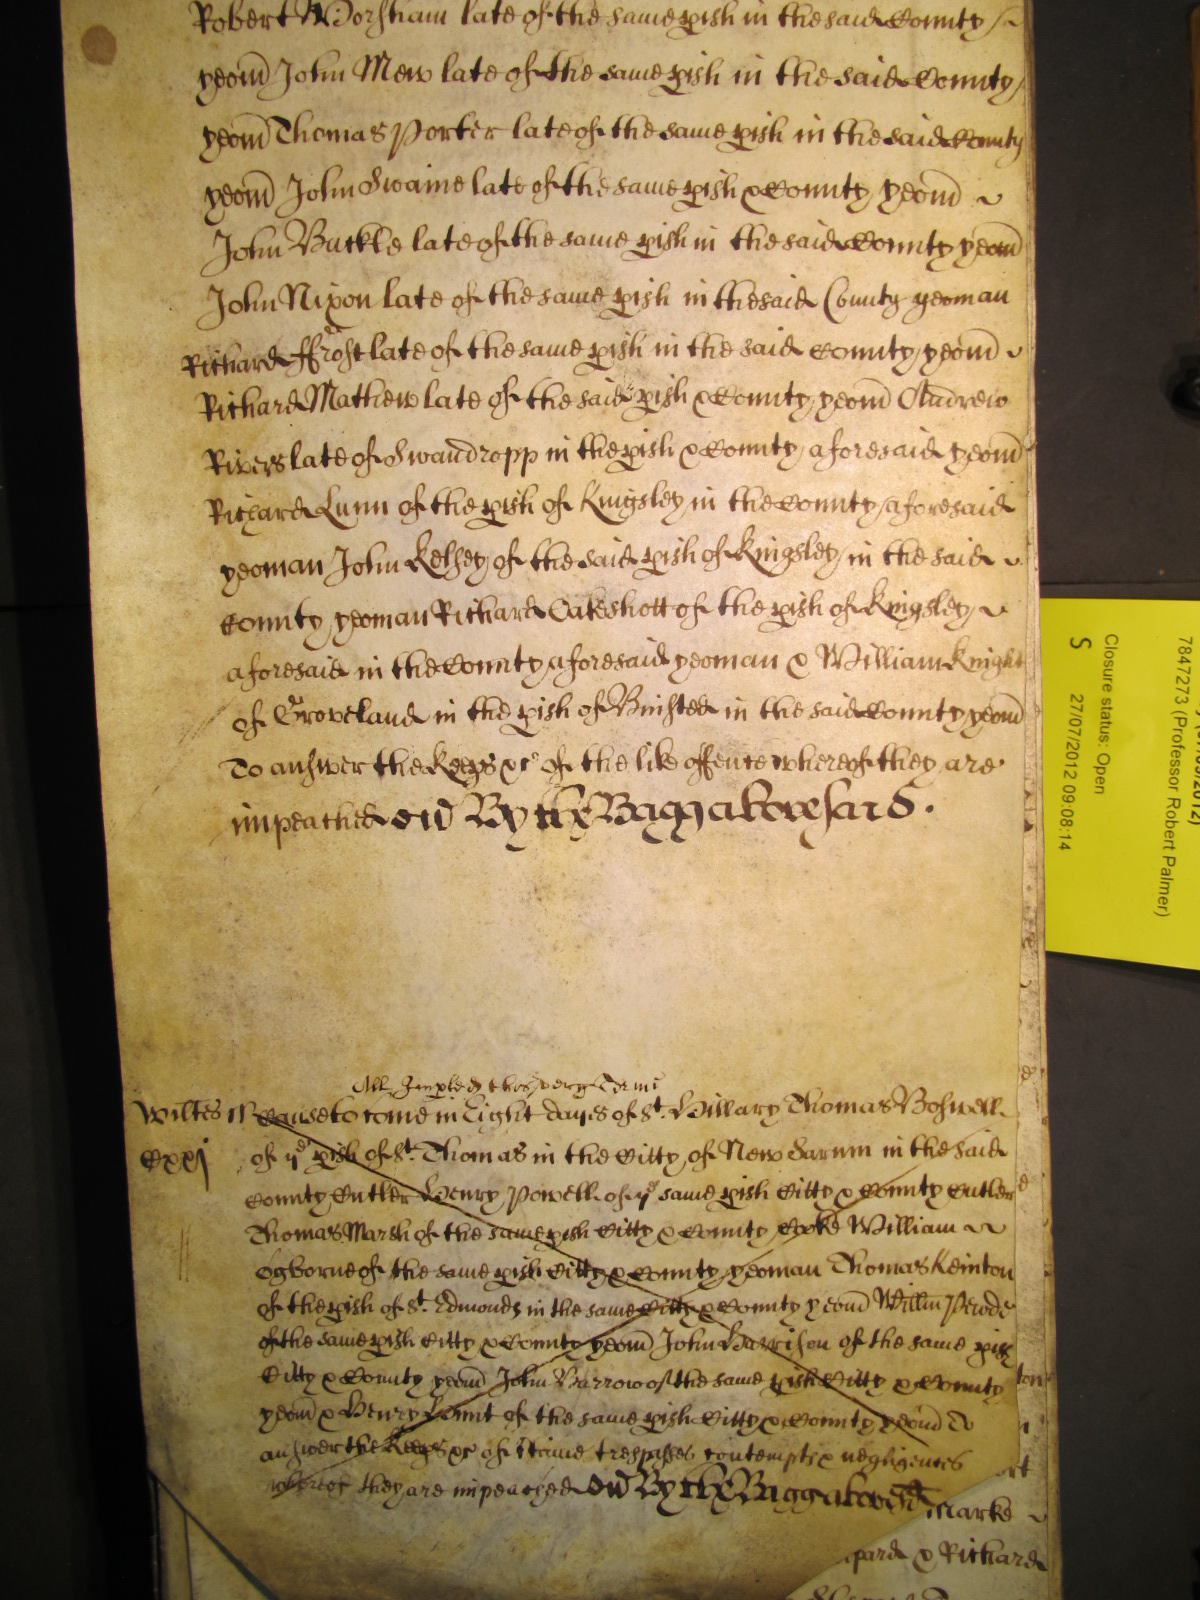 Robert Worsham late of the same pish in the said County
yeom̄ John Mew late of the same pish in the said County
yeom̄ Thomas Porter late of the same pish in the said County
yeom̄ John Swaine late of the same pish & County yeom̄
John Buckle late of the same pish in the said County yeom̄
John Nixon late of the same pish in the said County yeoman
Richard ffrost late of the same pish in the said County yeom̄
Richard Mathew late of the said pish & County yeom̄ Andrew
Rivers late of Swandropp in the pish & County aforesaid yeom̄
Richard Lunn of the pish of Kingsley in the County aforesaid
yeoman John Kelsey of the said pish of Kingsley in the said
County yeoman Richard Cateshott of the pish of Kingsley
aforesaid in the County aforesaid yeoman & William Knight
of Groveland in the pish of Binsted in the said County yeom̄
To answer the Keeps &c of the like offence whereof they are
impeached By the Bagg aforesaid.
All Impled
Wiltes Cause to come in Eight dayes of St. Hillary Thomas Boswell
Cxxj of ye pish of St. Thomas in the Citty of New Sarum in the said
County Cutler Henry Powell of ye same pish Citty & County Cutler
Thomas Marsh of the same pish Citty & County Cooke William
Ogborne of the same pish Citty & County yeoman Thomas Keinton
of the pish of St. Edmonds in the same Citty & County yeom̄ Willm
of the same pish Citty & County yeom̄ John Harrison of the same pish
Citty & County yeom̄ John Barrow of the same pish Citty & County
yeom̄ & Henry of the same pish Citty & County yeom̄ To
answer the Keeps &c of trespasses contempts & negligences
whereof they are impeached By the Bagg
Marke
& Richard
7847273 (Professor Robert Palmer)
Closure status: Open
S 27/07/2012 09:08:14